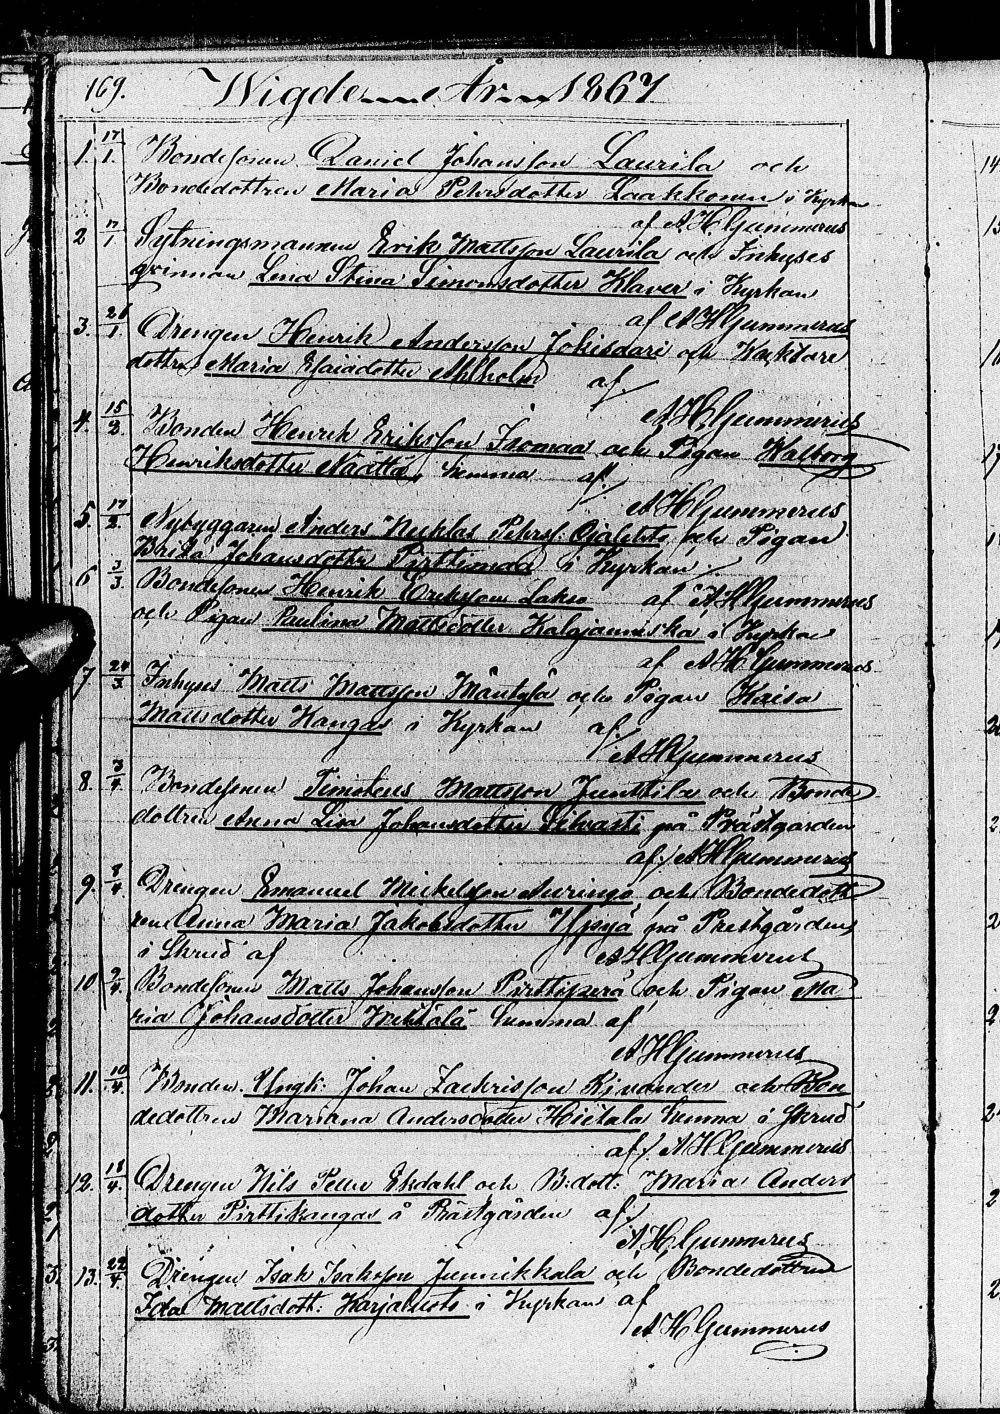 169. Wigde År 1867
1. 17/1. Bondesonen Daniel Johansson Laurila och
Bondedottren Maria Petersdotter Laakkonen i Kyrkan
af A H Gummerus
2 17/1 Sytningsmannen Erik Mattsson Laurila och Inhyses
qvinnan Lena Stina Simonsdotter Klaver i Kyrkan
af A H Gummerus
3. 1. Drengen Henrik Andersson Jokisaari och Wacktare
dottren Maria Esaiadotter Ahlholm af
A H Gummerus
4. 15/2. Bonden Henrik Eriksson Isomaa och Pigan Walborg
Henriksdotter Näätta, hemma af
A H Gummerus
5. 17/2. Nybyggaren Anders Nicklas Peterss: Ojalehto och Pigan
Brita Johansdotter Pirttimaa i Kyrkan
af A H Gummerus
6 3/3. Bondesonen Henrik Eriksson Lakso
och Pigan Paulina Mattsdotter Kalajanniska i Kyrkan
af A H Gummerus
7 24/3 Inhyses Matts Mattsson Mäntylä och Pigan Kaisa
Mattsdotter Kangas i Kyrkan af
A H Gummerus
8. 3/4. Bondesonen Timoteus Mattsson Junttila och Bonde
dottren Anna Lisa Johansdotter på Prästgården
af A H Gummerus
9. 8/4. Drengen Emanuel Mickelsson och Bondedott
ren Anna Maria Jakobsdotter Yppyä på Prestgården
i Skrud af A H Gummerus
10. 9/4. Bondesonen Matts Johansson Pirttiperä och Pigan Ma
ria Johansdotter hemma af
A H Gummerus
11. 10/4. Bonden Yngk: Johan Zachrisson Kivander och Bon
dedottren Mariana Andersdotter Hietala hemma i Skrud
af A H Gummerus
12. 18/4. Drengen Nils Petter Ekdahl och B:dott: Maria Anders
dotter Pirttikangas å Prästgården af
A H Gummerus
13. 22/4. Drengen Isak Isaksson Junnikkala och Bondedottren
Ida Mattsdott: Karjalehto i Kyrkan af
A H Gummerus